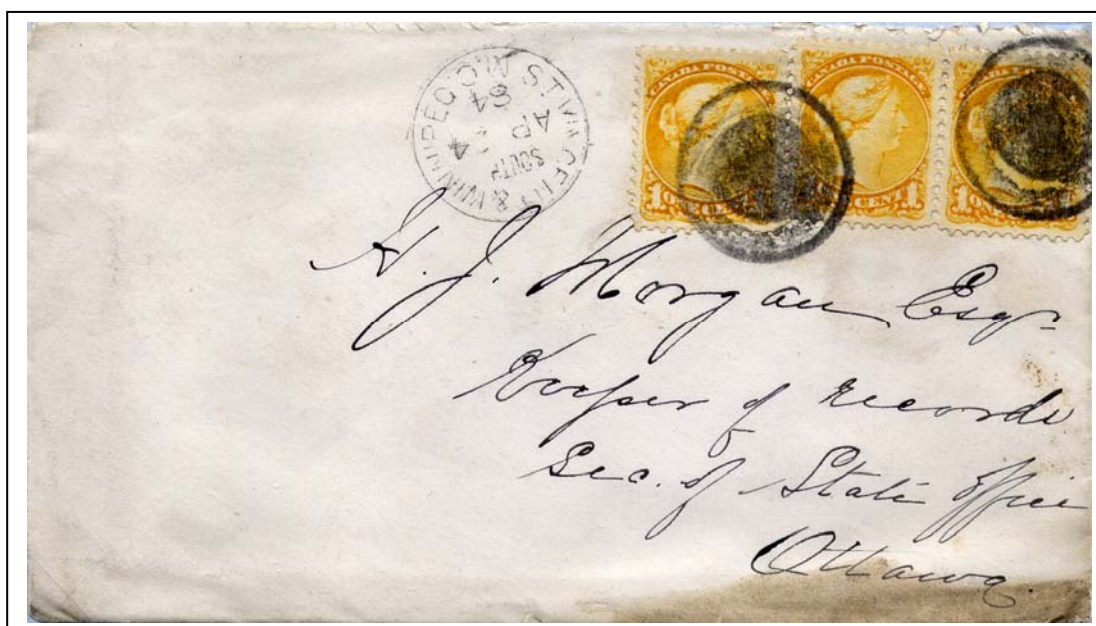 ST. VINCENT & WINNIPEG. M.C.
SOUTH
AP
84
CANADA POSTAGE
1 ONE CENT 1
CANADA POSTAGE
1 ONE CENT 1
1
H. J. Morgan Esqr
Keeper of Records
Sec. of State Office
Ottawa